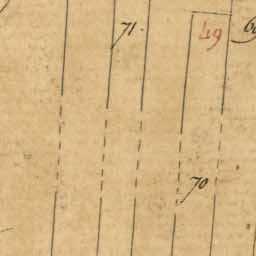 71.
49
70